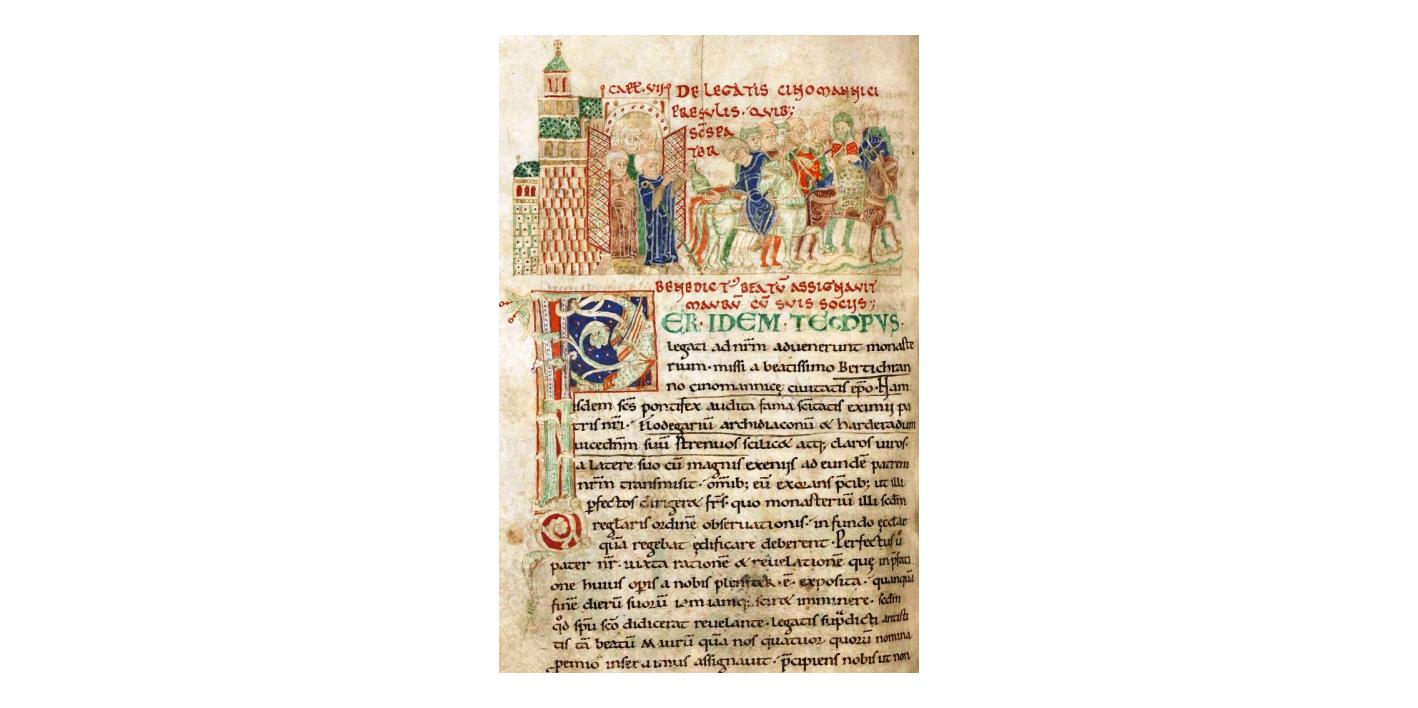 CAPT. VIII DE LEGATIS CINOMANNICI
PRESULIS. QUIB;
SCS PA
TER
BENEDICT' BEATŪ ASSIGNAVIT
MAVRŪ CŪ SVIS SOCIIS;
PER. IDEM. TEMPVS.
legati ad nr̄m advenerunt monaste
rium. missi a beatissimo Bertichran
no cinomannicę civitatis ep̄o. Nam
isdem sc̄s pontifex audita fama sc̄itatis eximii pa
tris nr̄i. flodegariū archidiaconū & harderadum
vicedn̄m suū strenuos scilic& atq; claros viros.
a latere suo cū magnis exeniis ad eundē patrem
nr̄m transmisit. om̄ib; eū exorans p̄cib; ut illi
pfectos dirigere fr̄s. quo monasteriū illi scdm
reglaris ordinē observationis. in fundo ęcclae
quā regebat ędificare deberent. Perfectus ū
pater nr̄. iuxta rationē & revelationē quę in p̄fati
one huius opis a nobis pleniter. ē. exposita. quanquā
finē dierū suorū iam iamq; sciret imminere. scdm
qd̄ sp̄u sc̄o didicerat revelante. legatis sup̄dicti antisti
tis tā beatū Maurū quā nos quatuor quorū nomina
p̄emio inseramus assignavit. p̄cipiens nobis ut non